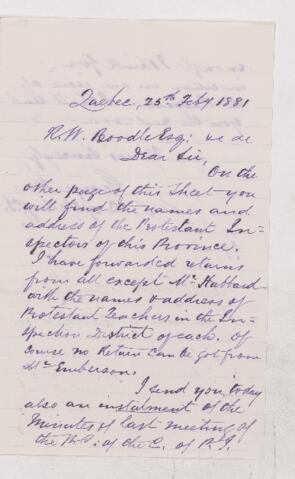 Quebec, 25th Feby 1881
R. W. Boodle Esq: &c &c
Dear Sir,
On the
other page of this Sheet you
will find the names and
address of the Protestant In-
spectors of this Province.
I have forwarded returns
from all except Mr Hubbard
with the names & address of
Protestant Teachers in the In-
spection District of each. Of
course no Return can be got from
Mr Emberson.
I send you today
also an instalment of the
Minutes of last meeting of
the P.C: of the C. of P. I.